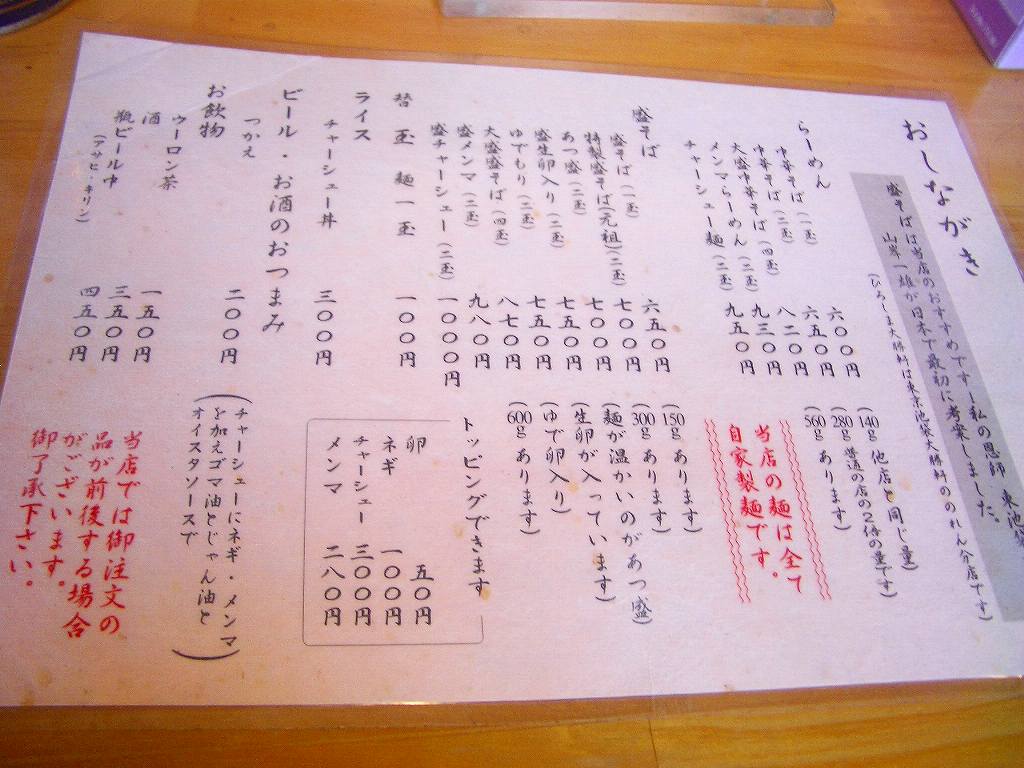 おしながき
盛そばは当店のおすすめです!私の恩師 東池袋
山岸一雄が日本で最初に考案しました。
(ひろしま大勝軒は東京池袋大勝軒ののれん分店です)
らーめん
中華そば(一玉) 六〇〇円 (140g 他店と同じ量)
中華そば(二玉) 六五〇円 (280g 普通の店の2倍の量です)
大盛中華そば(四玉) 八二〇円 (560g あります)
メンマらーめん(二玉) 九三〇円
チャーシュー麺(二玉) 九五〇円
当店の麺は全て
自家製麺です。
盛そば
盛そば(一玉) 六五〇円 (150g あります)
特製盛そば(元祖)(二玉) 七〇〇円 (300g あります)
あつ盛(二玉) 七〇〇円 (麺が温かいのがあつ盛)
盛生卵入り(二玉) 七五〇円 (生卵が入っています)
ゆでもり(二玉) 七五〇円 (ゆで卵入り)
大盛盛そば(四玉) 八七〇円 (600g あります)
盛メンマ(二玉) 九八〇円
盛チャーシュー(二玉) 一〇〇〇円
替玉麺一玉 一〇〇円
トッピングできます
卵 五〇円
ネギ 一〇〇円
チャーシュー 三〇〇円
メンマ 二八〇円
ライス
チャーシュー丼 三〇〇円
ビール・お酒のおつまみ
つかえ 二〇〇円
(チャーシューにネギ・メンマ
を加えゴマ油とじゃん油と
オイスタソースで)
お飲物
ウーロン茶 一五〇円
酒 三五〇円
瓶ビール中 四五〇円
(アサヒ・キリン)
当店では御注文の
品が前後する場合
がございます。
御了承下さい。